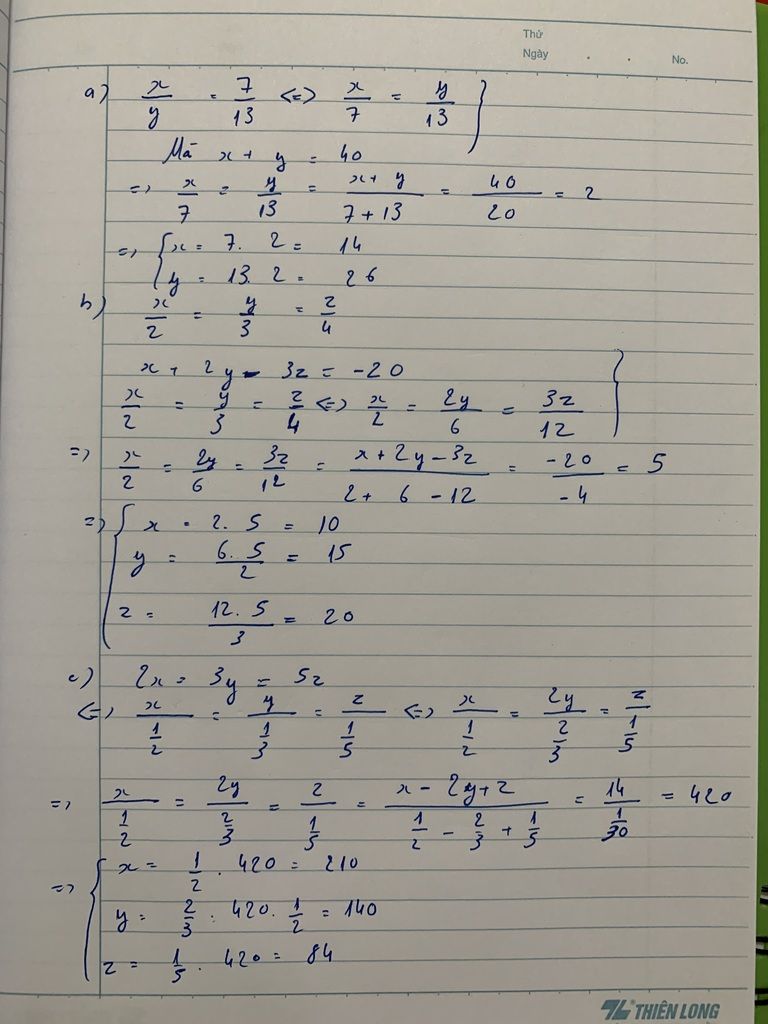 Thứ
Ngày . . No.
a) x/y = 7/13 <=> x/7 = y/13 }
Mà x + y = 40
=> x/7 = y/13 = (x + y)/(7 + 13) = 40/20 = 2
=> { x = 7. 2 = 14
y = 13. 2 = 26
b) x/2 = y/3 = z/4
x + 2y - 3z = -20
x/2 = y/3 = z/4 <=> x/2 = 2y/6 = 3z/12 }
=> x/2 = 2y/6 = 3z/12 = (x + 2y - 3z)/(2 + 6 - 12) = -20/-4 = 5
=> { x = 2. 5 = 10
y = (6. 5)/2 = 15
z = (12. 5)/3 = 20
c) 2x = 3y = 5z
<=> x/(1/2) = y/(1/3) = z/(1/5) <=> x/(1/2) = 2y/(2/3) = z/(1/5)
=> x/(1/2) = 2y/(2/3) = z/(1/5) = (x - 2y + z)/(1/2 - 2/3 + 1/5) = 14/(1/30) = 420
=> { x = 1/2 . 420 = 210
y = 2/3 . 420. 1/2 = 140
z = 1/5 . 420 = 84
THIÊN LONG